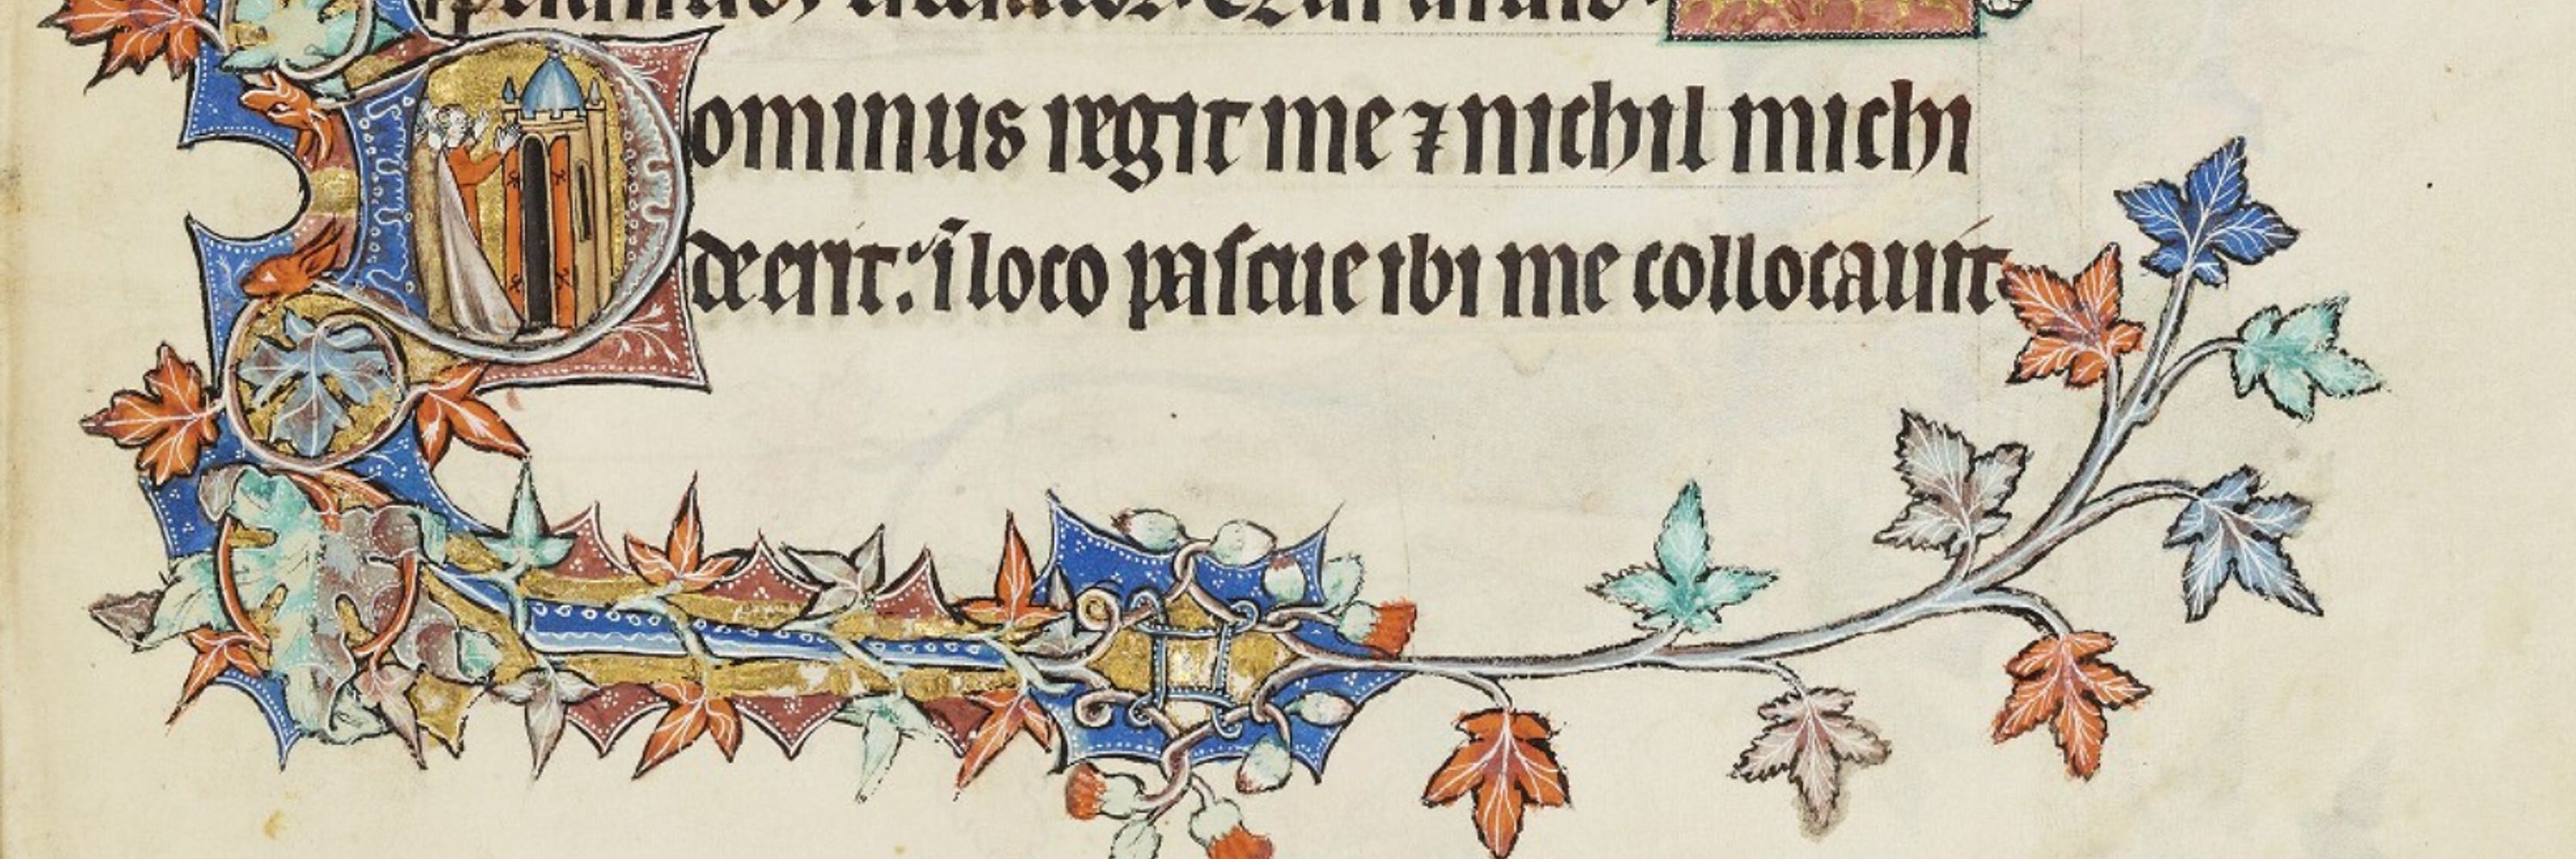 Dominus regit me ⁊ nichil michi
deerit: ī loco paſcue ibi me collocauit